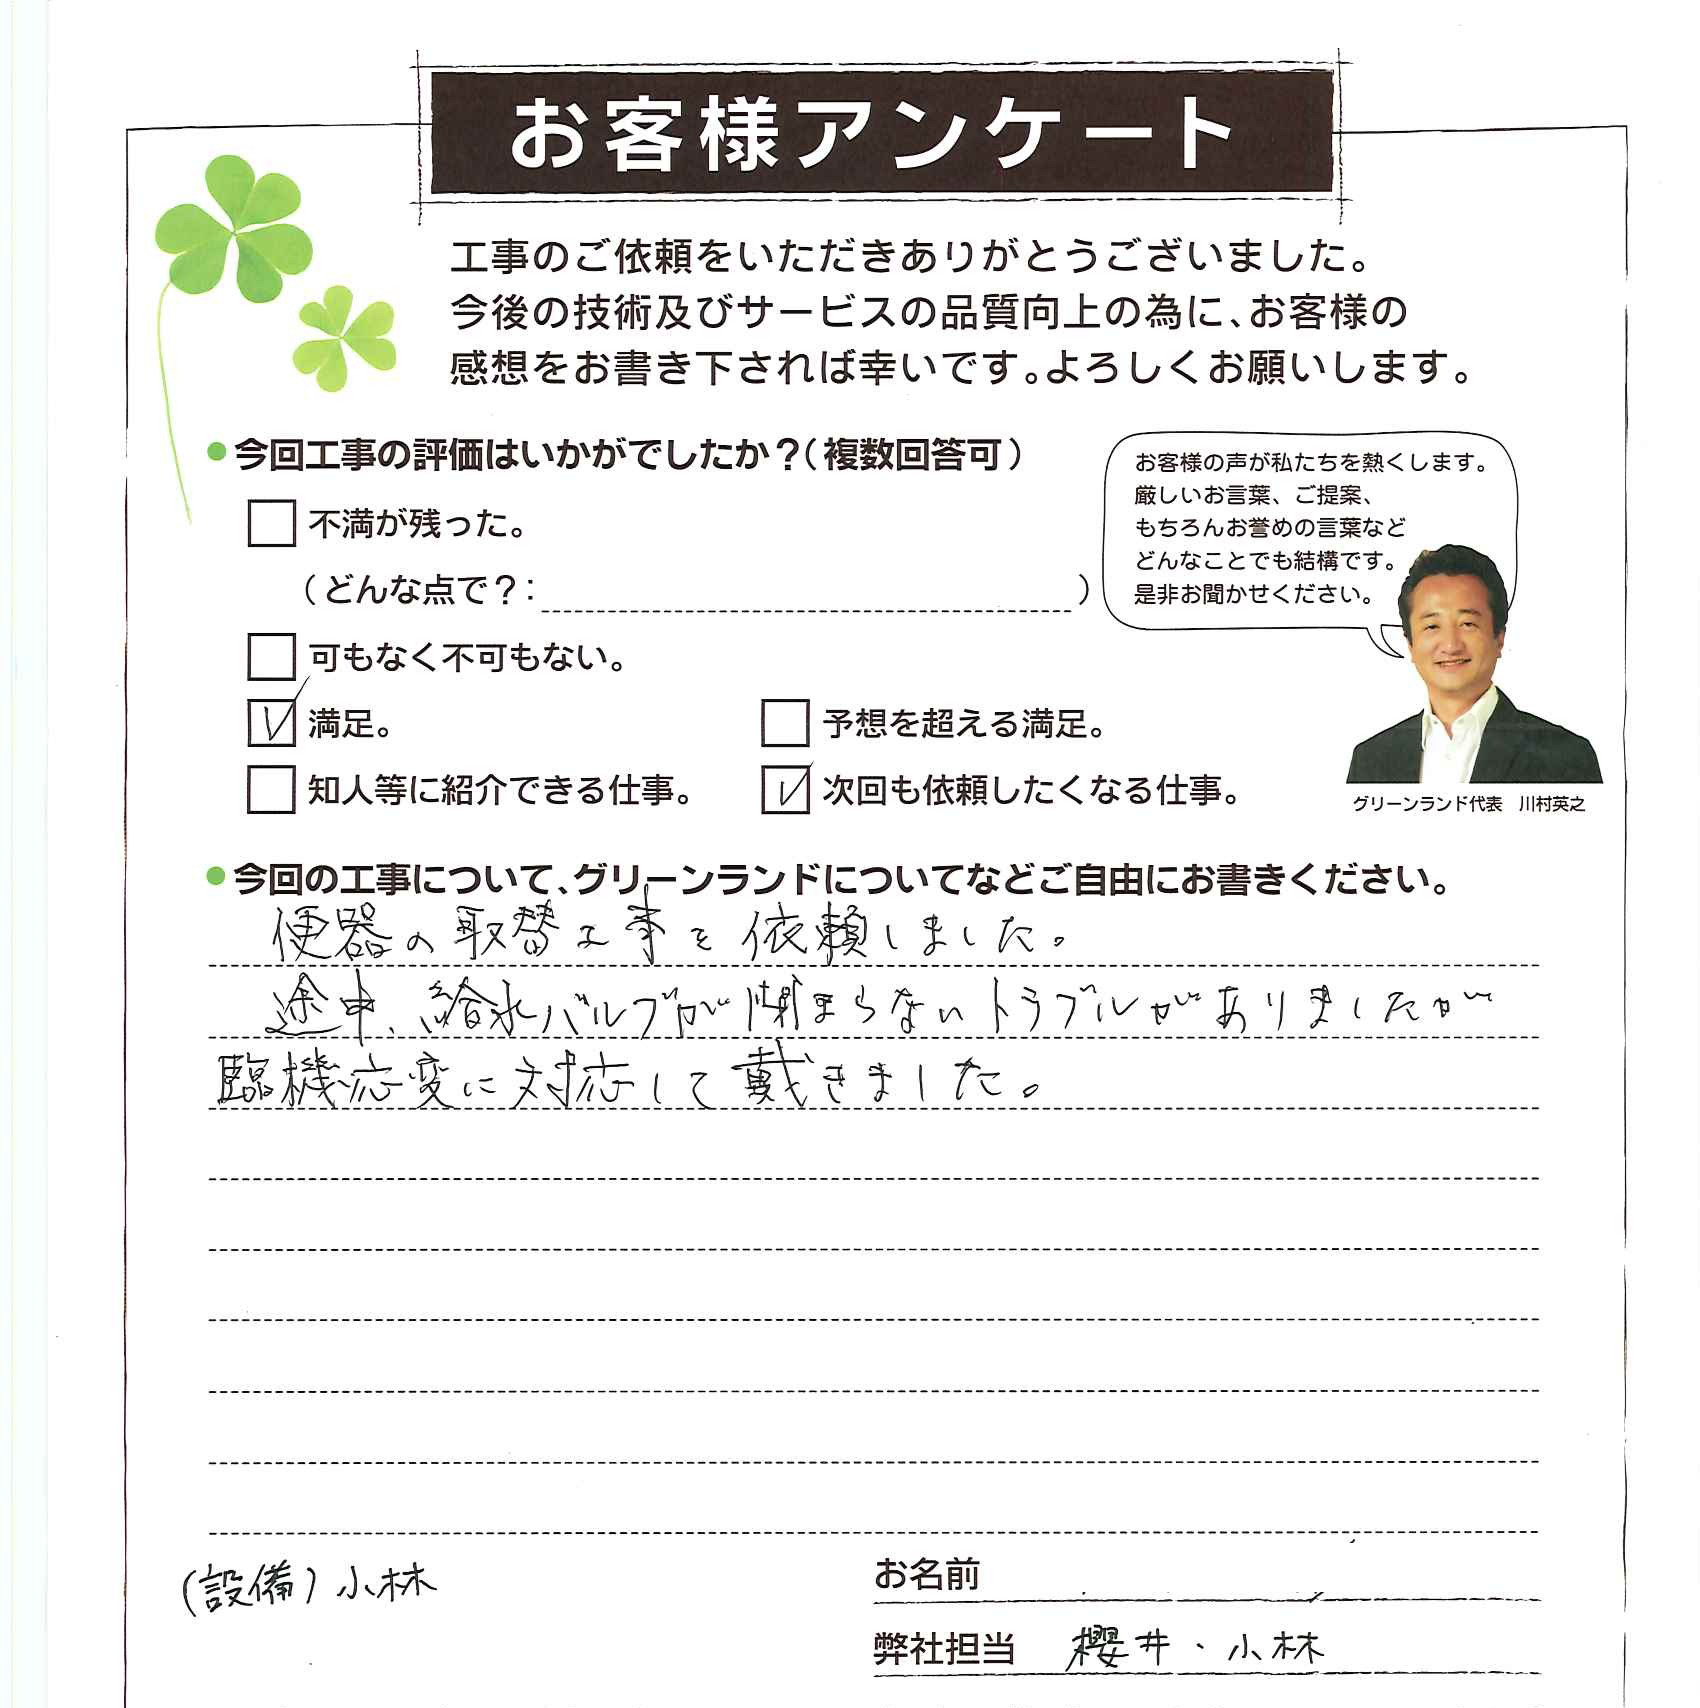 お客様アンケート
工事のご依頼をいただきありがとうございました。
今後の技術及びサービスの品質向上の為に、お客様の
感想をお書き下されば幸いです。よろしくお願いします。
今回工事の評価はいかがでしたか？（複数回答可）
不満が残った。
（どんな点で？：　）
可もなく不可もない。
満足。
予想を超える満足。
知人等に紹介できる仕事。
次回も依頼したくなる仕事。
お客様の声が私たちを熱くします。
厳しいお言葉、ご提案、
もちろんお誉めの言葉など
どんなことでも結構です。
是非お聞かせください。
グリーンランド代表　川村英之
今回の工事について、グリーンランドについてなどご自由にお書きください。
便器の取替工事を依頼しました。
途中、給水バルブが閉まらないトラブルがありましたが
臨機応変に対応して戴きました。
（設備）小林
お名前
弊社担当　櫻井・小林